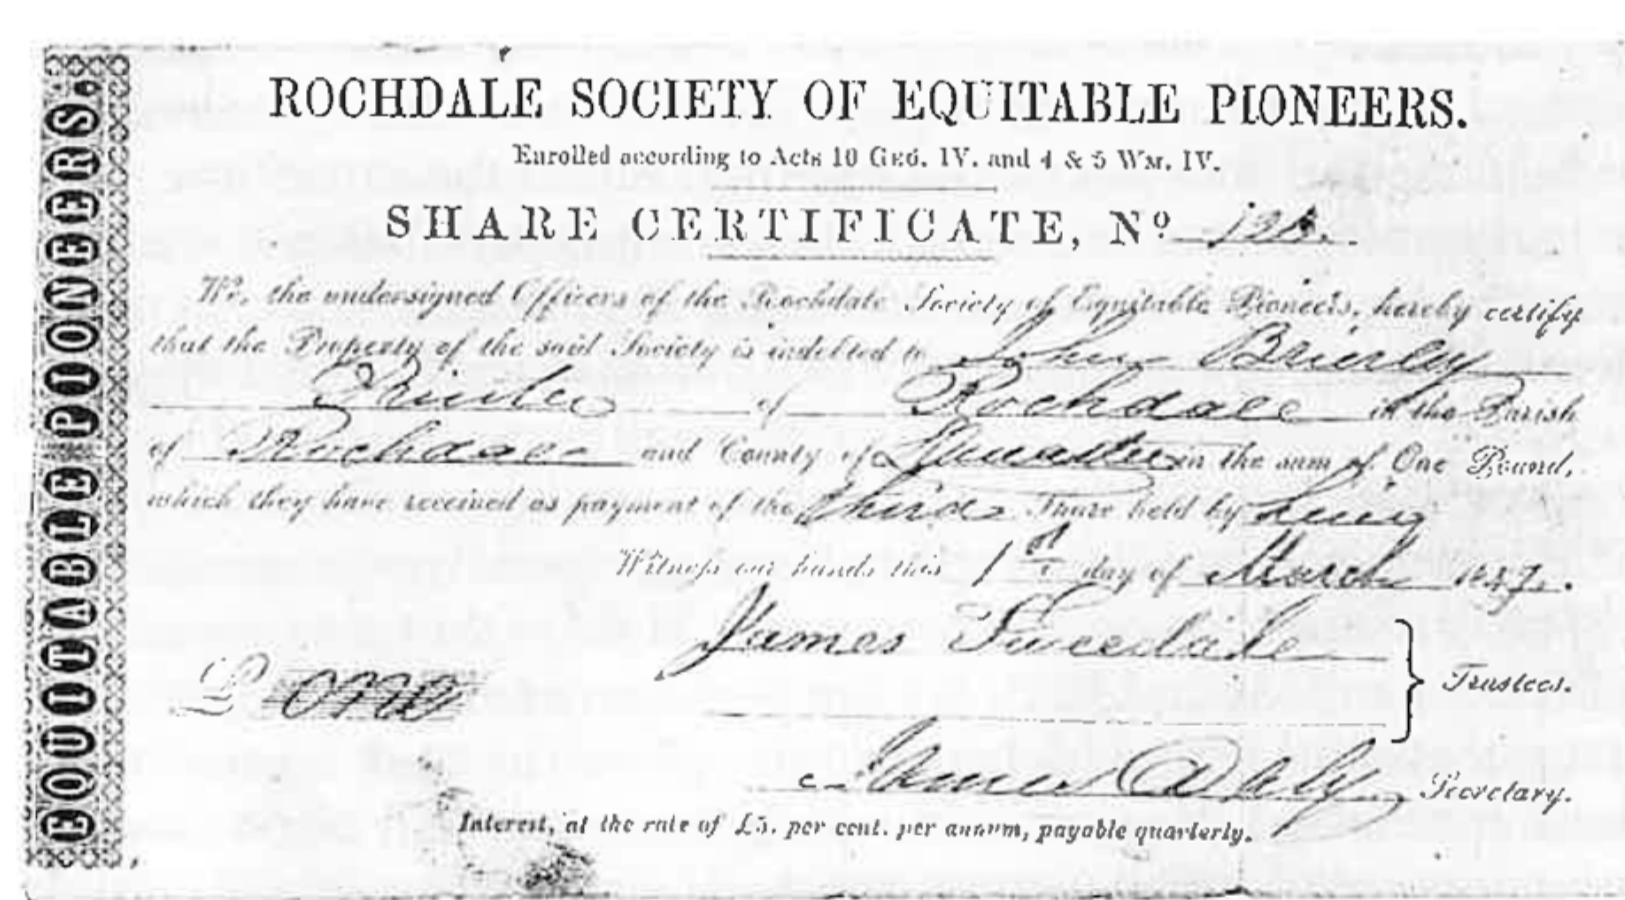 EQUITABLE PIONEERS.
ROCHDALE SOCIETY OF EQUITABLE PIONEERS.
Enrolled according to Acts 10 GEO. IV. and 4 & 5 WM. IV.
SHARE CERTIFICATE, No.
We, the undersigned Officers of the Rochdale Society of Equitable Pioneers, hereby certify
that the Property of the said Society is indebted to John Brierley
of Rochdale in the Parish
of Rochdale and County of Lancaster in the sum of One Pound,
which they have received as payment of the third Share held by him
Witness our hands this 1st day of March 1847.
James Tweedale
Trustees.
£ one
James Daly Secretary.
Interest, at the rate of £5. per cent. per annum, payable quarterly.